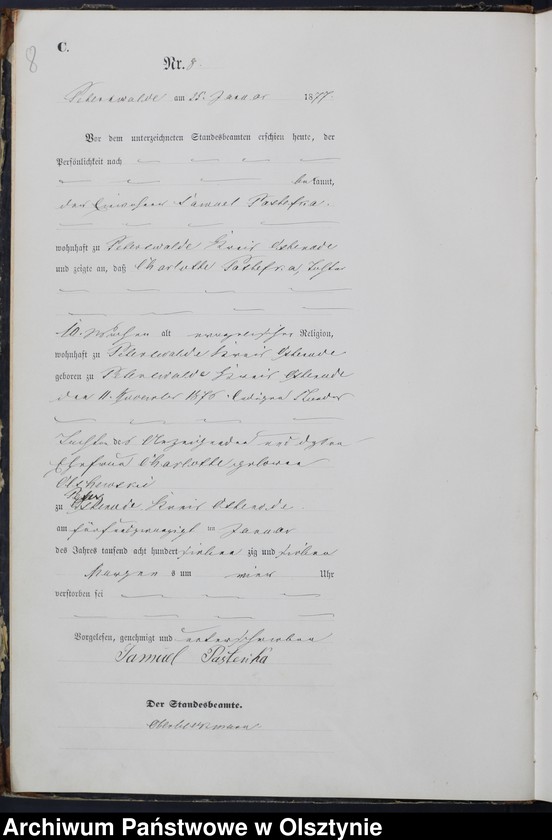 8
C.
Nr. 8.
Peterswalde am 25. Januar 1877.
Vor dem unterzeichneten Standesbeamten erschien heute, der
Persönlichkeit nach
bekannt,
der Einwohner Samuel
wohnhaft zu Peterswalde Kreis Osterode
und zeigte an, daß Charlotte Tochter
10 Wochen alt evangelischer Religion,
wohnhaft zu Peterswalde Kreis Osterode
geboren zu Peterswalde Kreis Osterode
den 11. November 1876
Tochter des Anzeigenden und dessen
Ehefrau Charlotte geborene
zu Kreis Osterode
am fünfundzwanzigsten Januar
des Jahres tausend acht hundert siebenzig und sieben
Morgens um vier Uhr
verstorben sei
Vorgelesen, genehmigt und unterschrieben
Samuel
Der Standesbeamte.
Archiwum Państwowe w Olsztynie